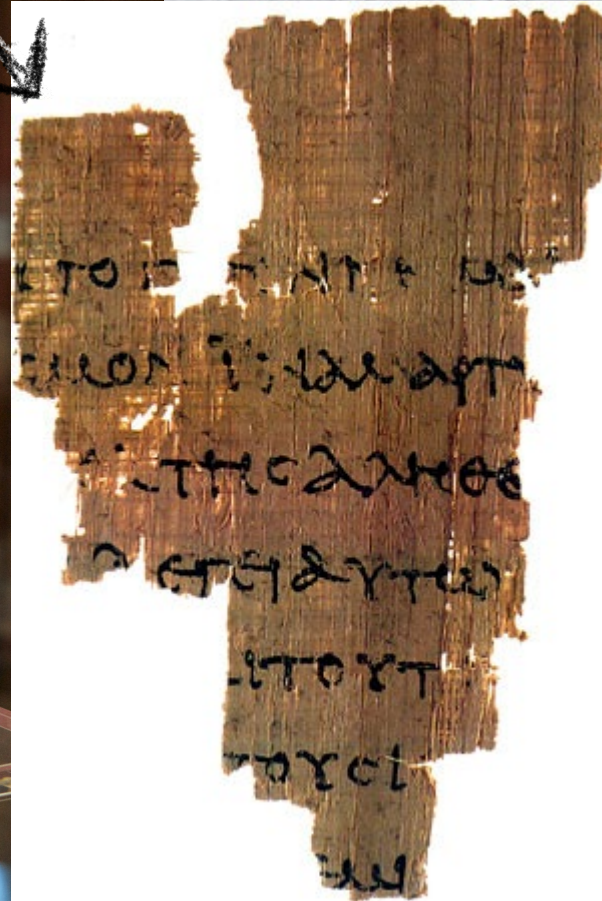 ΤΟ Γ
ϹΜΟΝ ΙΝΑ ΜΑΡΤΥ
ΤΗϹ ΑΛΗΘΕ
ΛΕΓΕΙ ΑΥΤΩ
ΑΙ ΤΟΥΤ
ΤΟΥϹ Ι